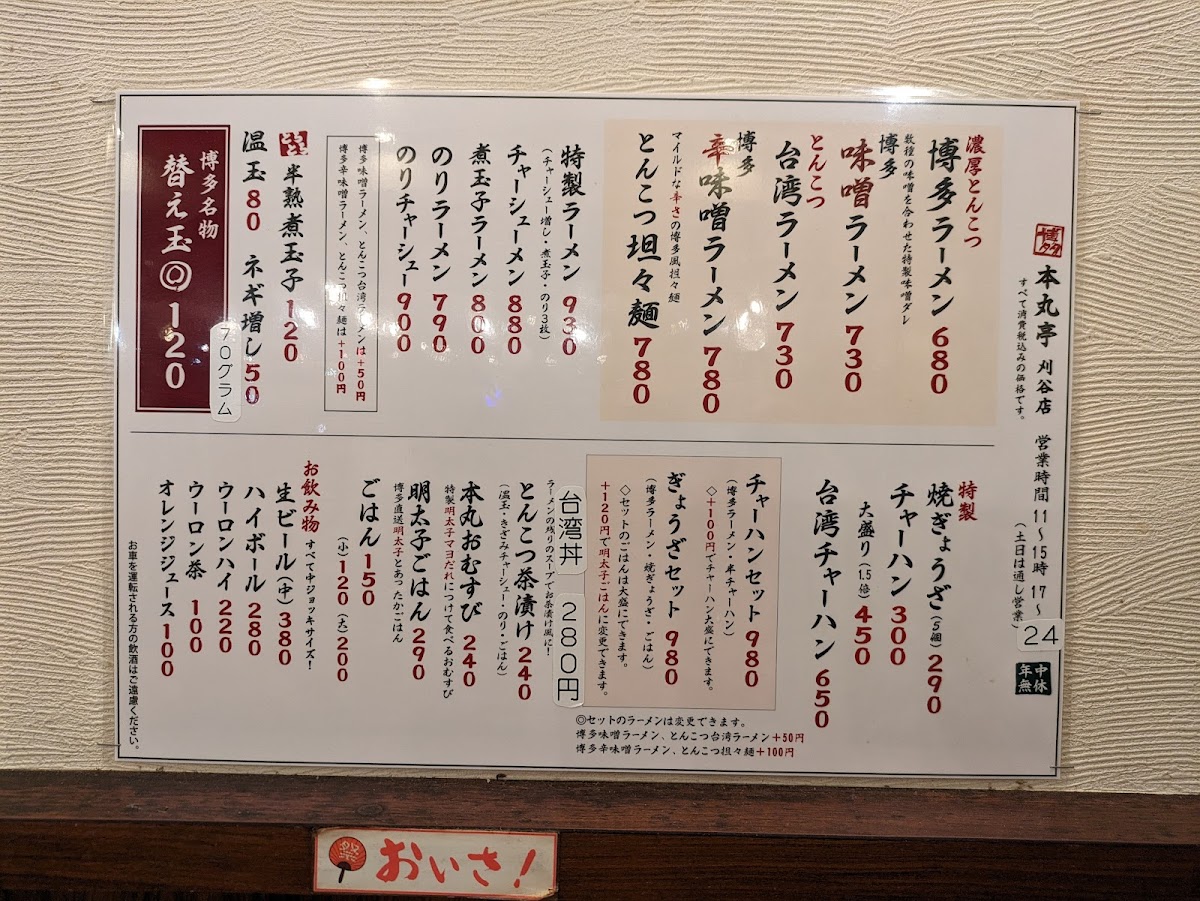 博多
本丸亭 刈谷店 営業時間 11〜15時 17〜24
すべて消費税込みの価格です。
(土日は通し営業)
年中無休
濃厚とんこつ
博多ラーメン 680
数種の味噌を合わせた特製味噌ダレ
博多
味噌ラーメン 730
とんこつ
台湾ラーメン 730
博多
辛味噌ラーメン 780
マイルドな辛さの博多風担々麺
とんこつ坦々麺 780
特製ラーメン 930
(チャーシュー増し・煮玉子・のり3枚)
チャーシューメン 880
煮玉子ラーメン 800
のりラーメン 790
のりチャーシュー 900
博多味噌ラーメン、とんこつ台湾ラーメンは+50円
博多辛味噌ラーメン、とんこつ担々麺は+100円
半熟煮玉子 120
温玉 80 ネギ増し 50
博多名物
替え玉 120
70グラム
特製
焼ぎょうざ(5個) 290
チャーハン 300
大盛り(1.5倍) 450
台湾チャーハン 650
チャーハンセット 980
(博多ラーメン・半チャーハン)
◇+100円でチャーハン大盛にできます。
ぎょうざセット 980
(博多ラーメン・焼ぎょうざ・ごはん)
◇セットのごはんは大盛にできます。
+120円で明太子ごはんに変更できます。
◎セットのラーメンは変更できます。
博多味噌ラーメン、とんこつ台湾ラーメン+50円
博多辛味噌ラーメン、とんこつ担々麺+100円
台湾丼 280円
ラーメンの残りのスープでお茶漬け風に!
とんこつ茶漬け 240
(温玉・きざみチャーシュー・のり・ごはん)
本丸おむすび 240
特製明太子マヨだれにつけて食べるおむすび
明太子ごはん 290
博多直送明太子とあったかごはん
ごはん 150
(小)120 (大)200
お飲み物 すべて中ジョッキサイズ!
生ビール(中) 380
ハイボール 280
ウーロンハイ 220
ウーロン茶 100
オレンジジュース 100
お車を運転される方の飲酒はご遠慮ください。
祭
おいさ!